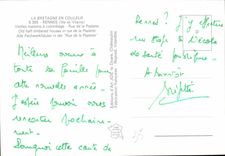 LA BRETAGNE EN COULEUR
RENNES (Ille-et-Vilaine)
Vieilles maisons à colombage - Rue de la Psalette
Old half-timbered houses in rue de la Psalette
Alte Fachwerkhäuser in der "Rue de la Psalette"
Meilleurs voeux à
toute la famille pour
cette nouvelle année -
J'espère pouvoir vous
rencontrer prochaine-
ment -
Pourquoi cette carte de
Rennes ? J'y effectue
un stage à l'école
de santé publique -
A bientôt